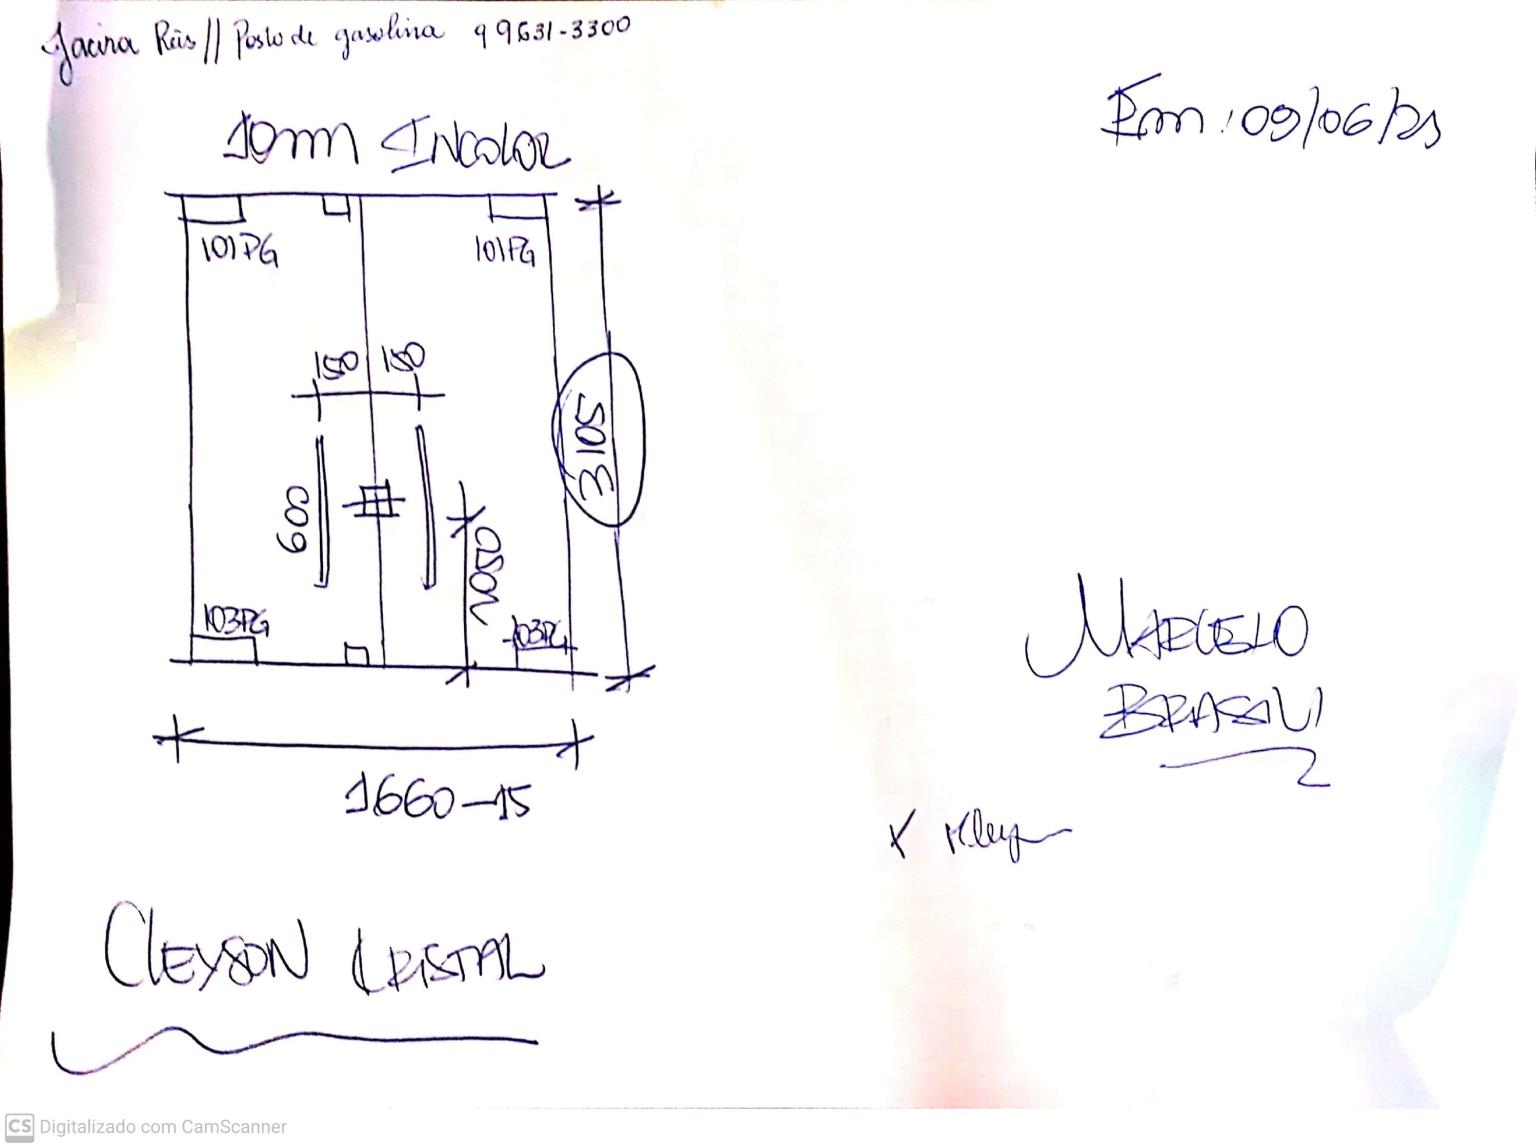 Jacira Reis // Posto de gasolina 99631-3300
Em: 09/06/21
10mm INCOLOR
101PG
101PG
150
150
3105
600
1050
103PG
103PG
1660-15
MARCELO
BRASIL
X
CLEYSON CRISTAL
CS Digitalizado com CamScanner